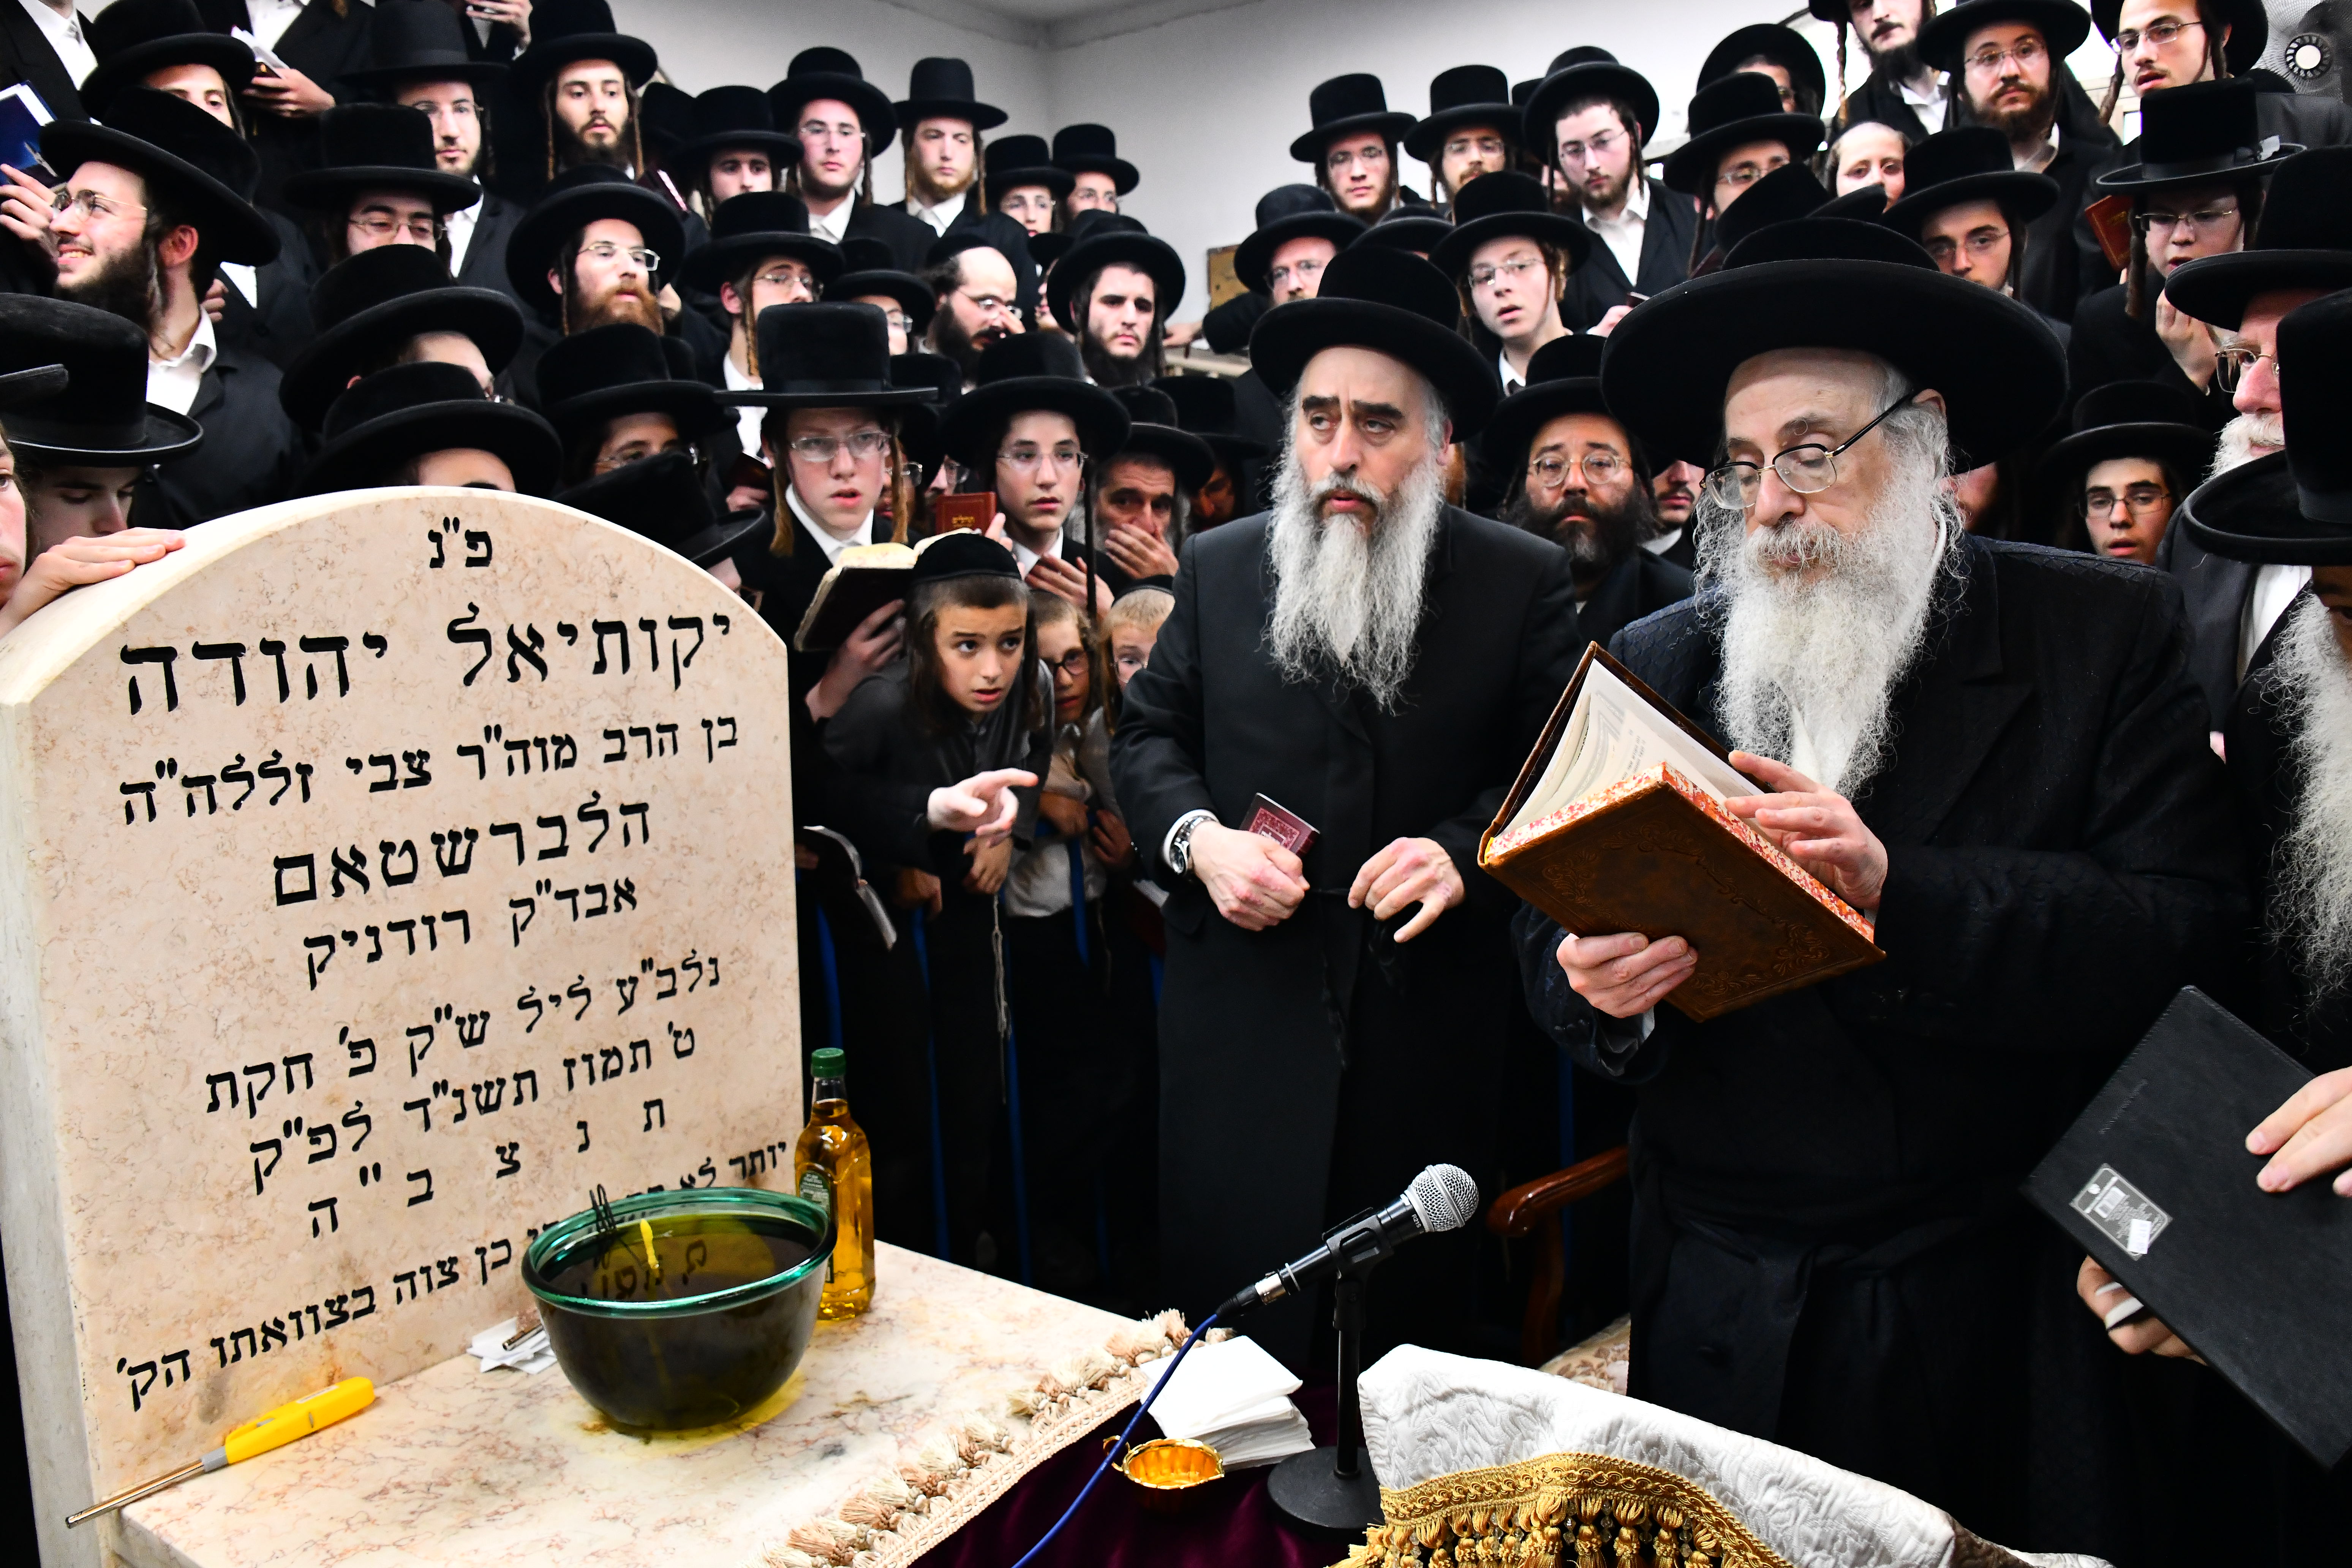 פ"נ
יקותיאל יהודה
בן הרב מוה"ר צבי זללה"ה
הלברשטאם
אבד"ק רודניק
נלב"ע ליל ש"ק פ' חקת
ט' תמוז תשנ"ד לפ"ק
ת נ צ ב "ה
יותר לא
כן צוה בצוואתו הק'
תהלים